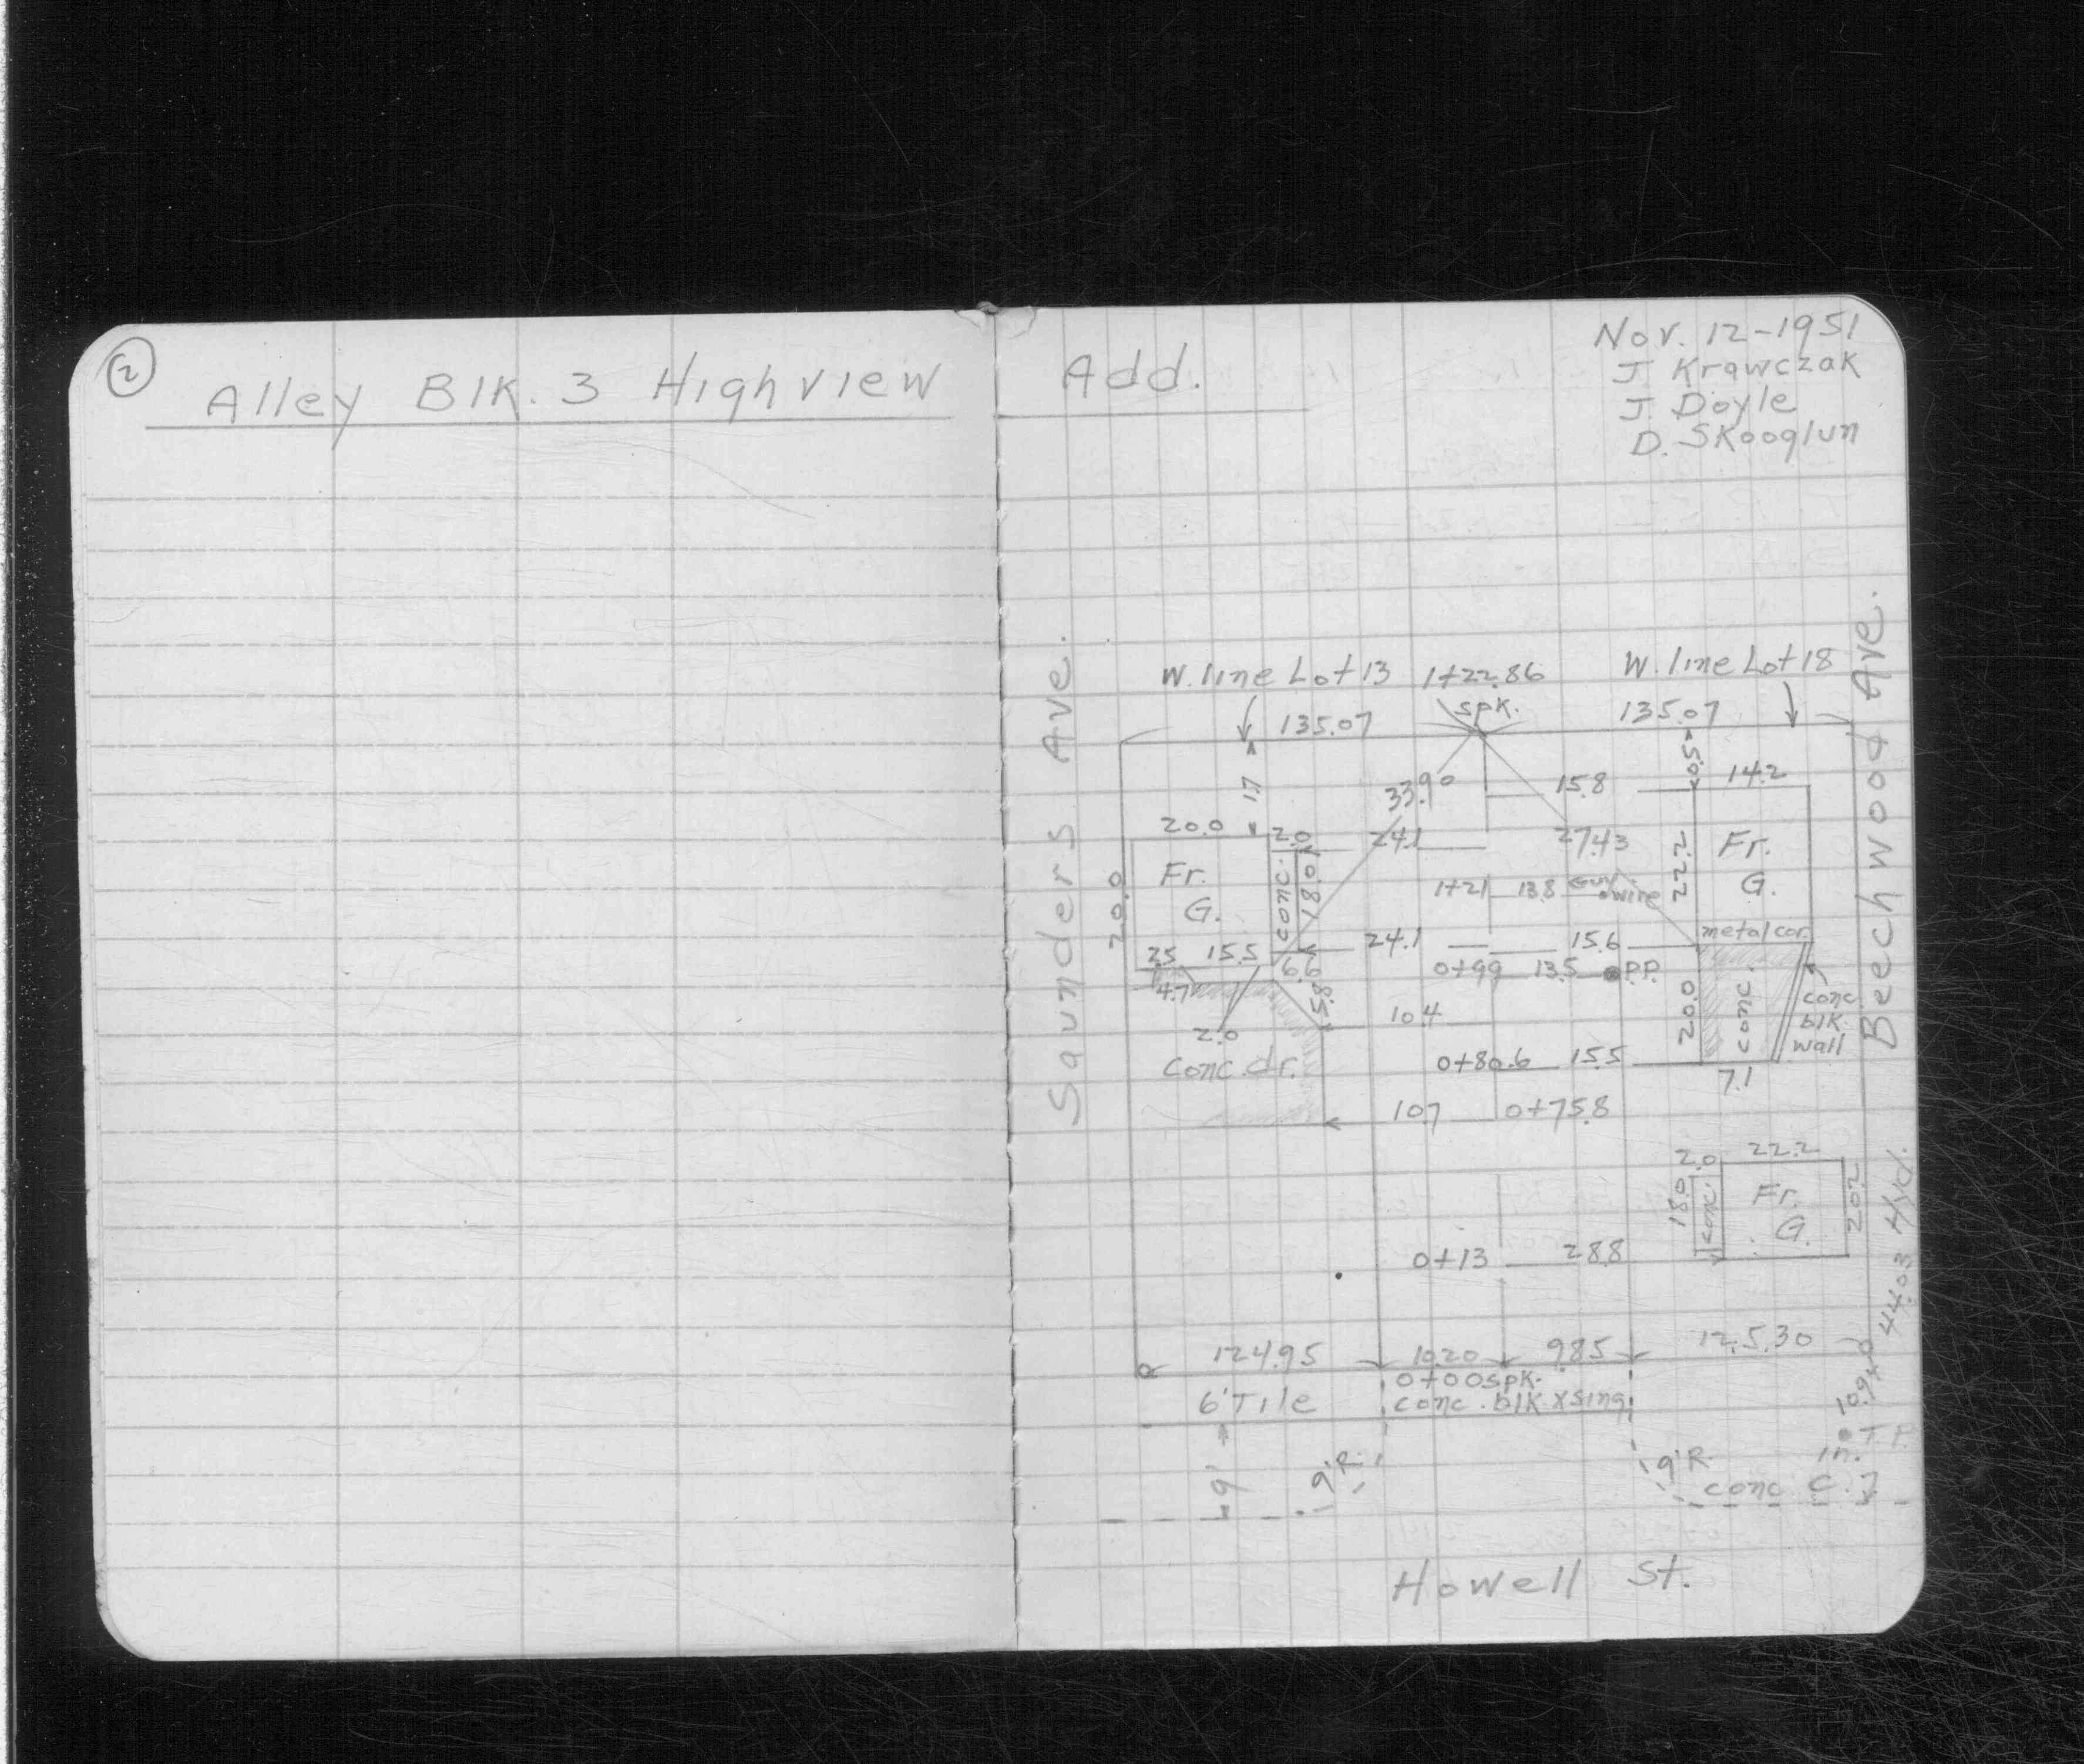 2
Alley Blk. 3 Highview Add.
Nov. 12-1951
J Krawczak
J. Doyle
D. Skooglun
Saunders Ave.
Beechwood Ave.
W. line Lot 13 1+22.86 W. line Lot 18
spk.
135.07 135.07
17 10.5
33.90 15.8 14.2
20.0 2.0 24.1 27.43
Fr. G.
20.0
conc. 18.0
22.2
Fr. G.
1+21 13.8 Guy wire
2.5 15.5 24.1 15.6 metal cor.
6.6 0+99 13.5 P.P.
4.7
5.8
2.0 10.4
20.0 conc. conc. blk. wall
Conc. dr. 0+80.6 15.5
7.1
10.7 0+75.8
2.0 22.2
18.0 conc. Fr. G. 20.2
0+13 28.8
44.03 Hyd.
124.95 10.20 9.85 125.30
0+00 spk.
6' Tile conc. blk xsing
10.9
T.P. in. conc. C.
9' 9'R. 9'R.
Howell St.